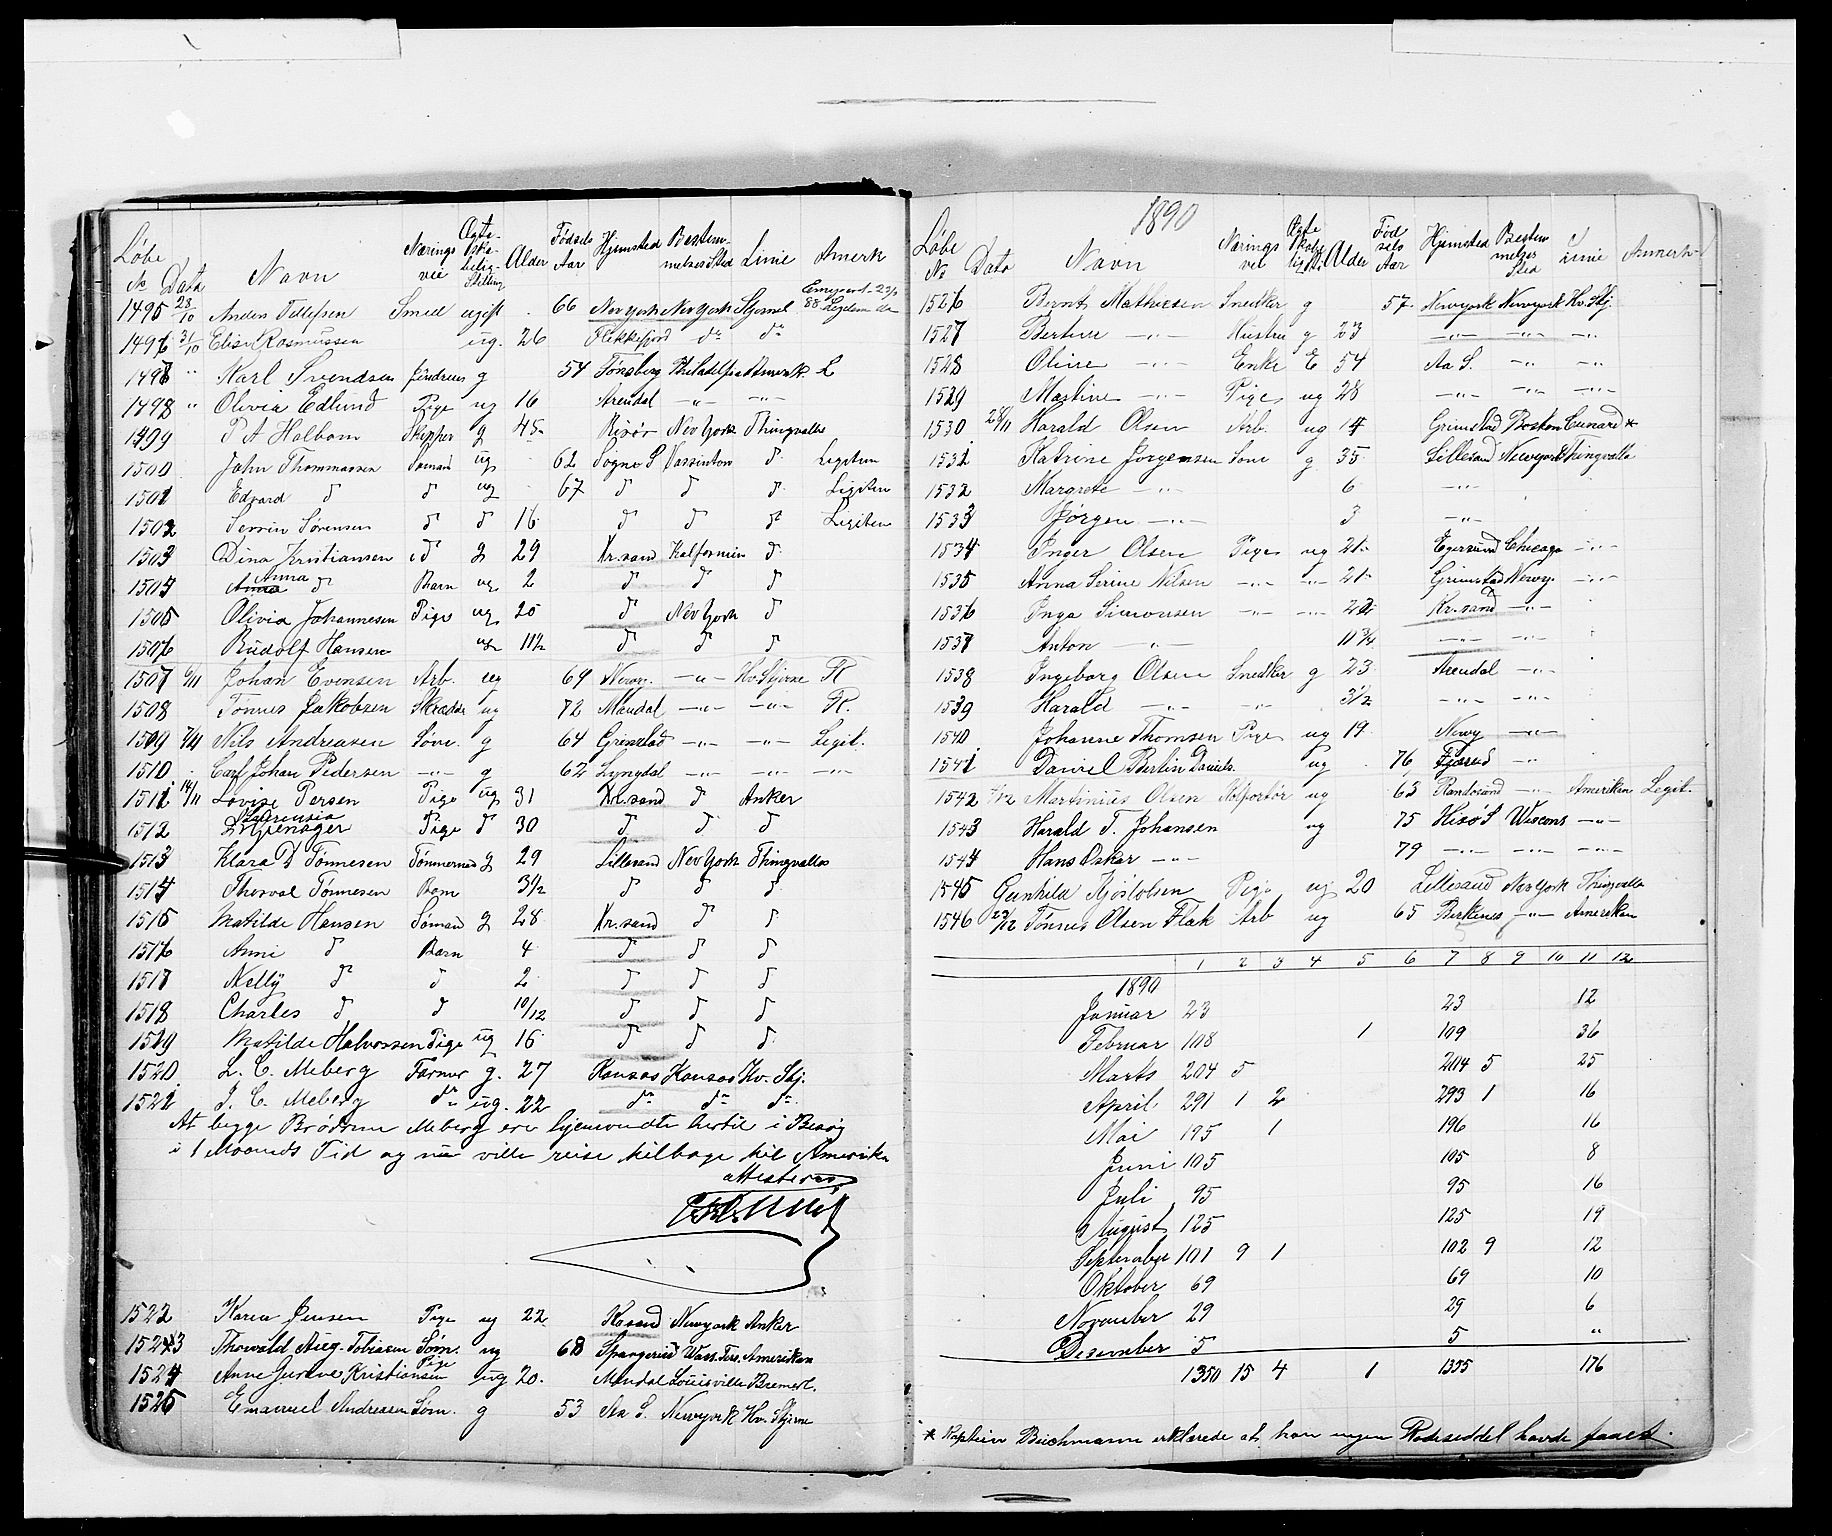 Løbe № Dato Navn Nærings vei Ægte- ska- belig- Stilling Alder Fødsels Aar Hjemsted Bestem- melsessted Linie Anmerk
1495 28/10 Anders Tellefsen Smed ugift 66 New york New York Stjernel
1496 31/10 Elise Rasmussen ug. 26 Flekkefjord do do
1497 " Karl Svendsen g 54 Tønsberg Philadelfia Amerik. L
1498 " Olivia Edlund Pige ug 16 Arendal -"- -"-
1499 P A Holbom Skipper g 45 Risør New York Thingvalla
1500 John Thommassen Sømand ug 62 Sogne S Vassinton d Legiten
1501 Edvard d d ug 67 d d d Legiten
1502 Serrin Sørensen d d 16 d d d Legiten
1503 Dina Kristiansen d g 29 Kr.sand Kalfornien d
1504 Anna d Barn ug 2 d d d
1505 Olivia Johannesen Pige ug 25 d New York d
1506 Rudolf Hansen ug 11½ d d d
1507 6/11 Johan Evensen Arb. ug 69 Newy. -"- Hv. Stjerne R
1508 Tønnes Jakobsen Skrædder ug 72 Mandal -"- -"- R.
1509 7/11 Nils Andreasen Søm. g 64 Grimstad -"- -"- Legit.
1510 Carl Johan Pedersen -"- g 62 Lyngdal -"- -"- -"-
1511 14/11 Lovise Persen Pige ug 31 Kr.sand d Anker
1512 Pige d 30 d d d
1513 Klara D Tønnesen Tømmermd g 29 Lillesand New York Thingvalla
1514 Thorval Tønnesen Barn 3½ d d d
1515 Matilde Hansen Sømand g 28 Kr.sand d d
1516 Anni d Barn 4 d d d
1517 Nelly d d 2 d d d
1518 Charles d d 10/12 d d d
1519 Matilde Halvorsen Pige ug 16 d d d
1520 L. C. Meberg Farmer g. 27 Kansas Kansas Hv. Stj.
1521 J. C. Meberg do ug. 22 do do do
At begge Brødrene Meberg ere hjemvendte hertil i Besøg
i 1 Maaneds Tid og nu ville reise tilbage til Amerika
attesteres
1522 Karen Jensen Pige ug 22 Krsand Newyork Anker
1523 Thorvald Aug. Tobiasen Søm. ug 68 Spangereid Wass. Ters. Amerikan
1524 Anne Jurine Kristiansen Pige ug 20. Mandal Louisville Bremerl.
1525 Emanuel Andreasen Søm. g 53 Aa S. Newyork Hv. Stjerne
1890
Løbe № Dato Navn Nærings vei Ægte skabe lig Still. Alder Fød sels Aar Hjemsted Bestem melses Sted Linie Anmerkn
1526 Bernt Mathiesen Snedker g 57 Newyork Newyork Hv. Stj
1527 Bertine -"- Hustru g 23 -"- -"- -"-
1528 Oline -"- Enke E 54 Aa S. -"- -"-
1529 Martine -"- Pige ug 28 -"- -"- -"-
1530 28/11 Harald Olsen Arb. ug 17 Grimstad Boston Cunard *
1531 Katrine Jørgensen Søm g 35 Lillesand Newyork Thingvalla
1532 Margrete -"- 6 -"-
1533 Jørgen -"- 3 -"-
1534 Inger Olsen Pige ug 21 Egersund Chicago -"-
1535 Anna Serine Nilsen -"- -"- 21 Grimstad Newy. -"-
1536 Inga Simonsen -"- -"- 22 Kr.sand -"-
1537 Anton -"- 11¾ -"- -"-
1538 Ingeborg Olsen Snedker g 23 Arendal -"-
1539 Harald -"- -"- 3½ -"- -"-
1540 Johanne Thomsen Pige ug 19 Newy -"-
1541 Daniel Bertin Daniels. ug 76 -"-
1542 /12 Martinius Olsen Kolportør ug 63 Randøsund -"- Amerikan Legit.
1543 Harald T. Johansen ug 75 Hisø S Wiscons -"-
1544 Hans Oskar -"- 79 -"- -"- -"-
1545 Gunhild Kjøstolsen Pige ug 20 Lillesand New York Thingvalla
1546 23/12 Tønnes Olsen Flak Arb ug 65 Birkenes -"- Amerikan
1 2 3 4 5 6 7 8 9 10 11 12
1890
Januar 23 23 12
Februar 108 1 109 36
Marts 204 5 204 5 25
April 291 1 2 293 1 16
Mai 195 1 196 16
Juni 105 105 8
Juli 95 95 16
August 125 125 19
September 101 9 1 102 9 12
Oktober 69 69 10
November 29 29 6
Desember 5 5 "
1350 15 4 1 1355 176
* Kaptein Buchmann erklærede at han ingen Rodeseddel havde faaet.